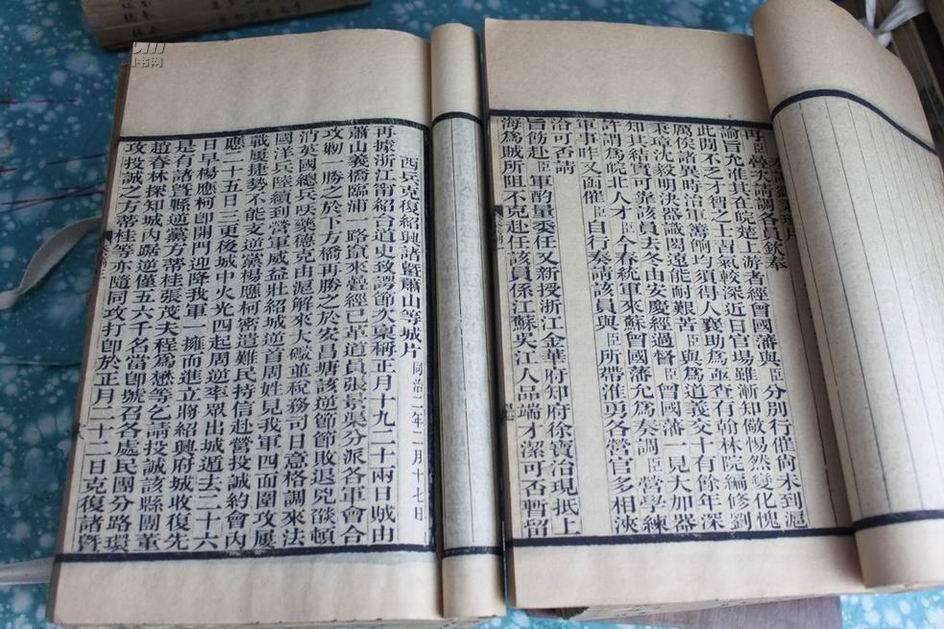 片
再臣營次請調各員欽奉
諭旨允准其在皖楚上游者經曾國藩與臣分別行催尚未到滬
此間不乏才智之士習氣較深近日官場雖漸知儆惕然變化愧
厲俟諸異時治軍籌餉均須得人襄助爲亟查有翰林院編修劉
秉璋沈毅明決器識閎遠能耐艱苦臣與爲道義交十有余年深
知其結實可靠該員去冬由安慶經過督臣曾國藩一見大加器
許謂爲皖北人才臣今春統軍來蘇曾國藩允爲奏調臣營學練
軍事昨又面催臣自行奏請該員與臣所帶淮勇各營官多相浹
洽可否請
旨飭赴臣軍酌量委任又新授浙江金華府知府徐寶治現抵上
海爲賊所阻不克赴任該員係江蘇吳江人品端才潔可否暫留
西兵克復紹興諸暨蕭山等城片 同治二年二月十七日
再據浙江甯紹台道史致諤節次稟稱正月十九二十兩日賊由
蕭山義橋臨浦一路竄來疊經已革道員張景渠分派各軍會合
攻剿一勝於下方橋再勝之於安昌塘該逆節節敗退兇燄頓
消英國總兵德克由滬解來大礮並稅務司日意格調來法
國洋兵陸續到營軍威益壯紹城逆首周姓見我軍四面圍攻屢
戰屢捷勢不能支逆黨楊應柯密遣難民持信赴營投誠約會內
應二十五日三更後城中火光四起周逆率眾出城遁去二十六
日早楊應柯卽開門迎降我軍一擁而進立將紹興府城收復先
是有諸暨縣逆黨方蒂桂張茂夫程爲懋等乞請投誠該縣團董
趙春林探知城內踞逆僅五六千名當卽號召各處民團分路環
攻投誠之方蒂桂等亦隨同攻打卽於正月二十二日克復諸暨